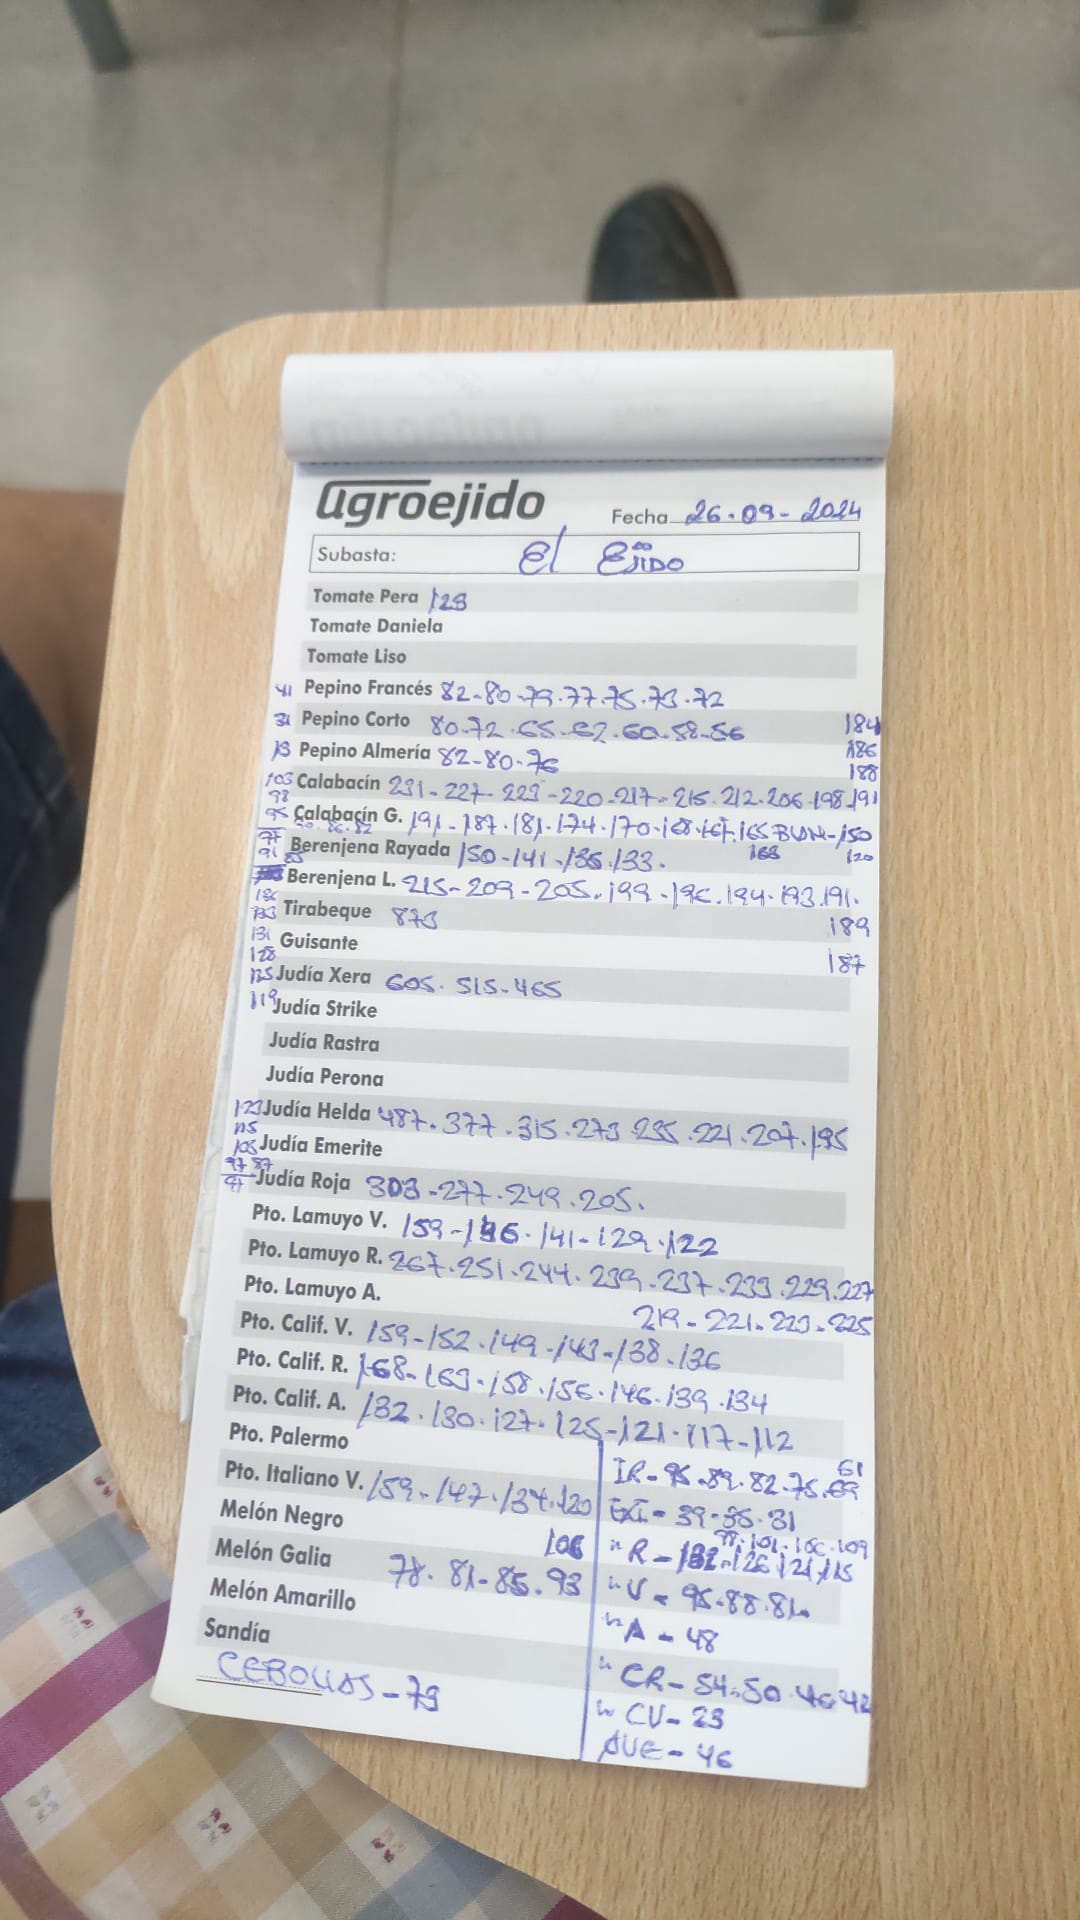 agroejido
Fecha 26-09-2024
Subasta: El EJIDO
Tomate Pera 129
Tomate Daniela
Tomate Liso
41 Pepino Francés 82-80-79.77.75.73.72
31 Pepino Corto 80.72.65-62-60-58-56 184
13 Pepino Almería 82-80-76 186
188
103 Calabacín 231-227-223-220-217-215.212.206-198-191
98
95 Calabacín G. 191-187.181.174.170.168.167.165 BUM-150
Berenjena Rayada 150-141-135.133. 163 120
91 85
Berenjena L. 215-209-205.199-196.194.193.191.
Tirabeque 873 189
133
131 Guisante 187
128
125 Judía Xera 605.515-465
119 Judía Strike
Judía Rastra
Judía Perona
123 Judía Helda 487.377.315.273.235.221.207.195
115
105 Judía Emerite
97 87
97 Judía Roja 303-277.249.205.
Pto. Lamuyo V. 159-146.141-129.122
Pto. Lamuyo R. 267.251.244.239.237.233.229.227
Pto. Lamuyo A. 219-221-223-225
Pto. Calif. V. 159-152.149-143-138.136
Pto. Calif. R. 168-163-158.156.146.139.134
Pto. Calif. A. 132.130.127.125-121.117-112
Pto. Palermo
61
IR-95.89.82.75.69
Pto. Italiano V. 159-147.134.120
EXT-39-35-31
Melón Negro 106
101.106.109
" R-132-126.121.115
Melón Galia 78.81-85.93
" V-95-88.81
Melón Amarillo
" A-48
Sandía
" CR-54.50.46.42
CEBOLLAS-79
" CV-23
AVE-46